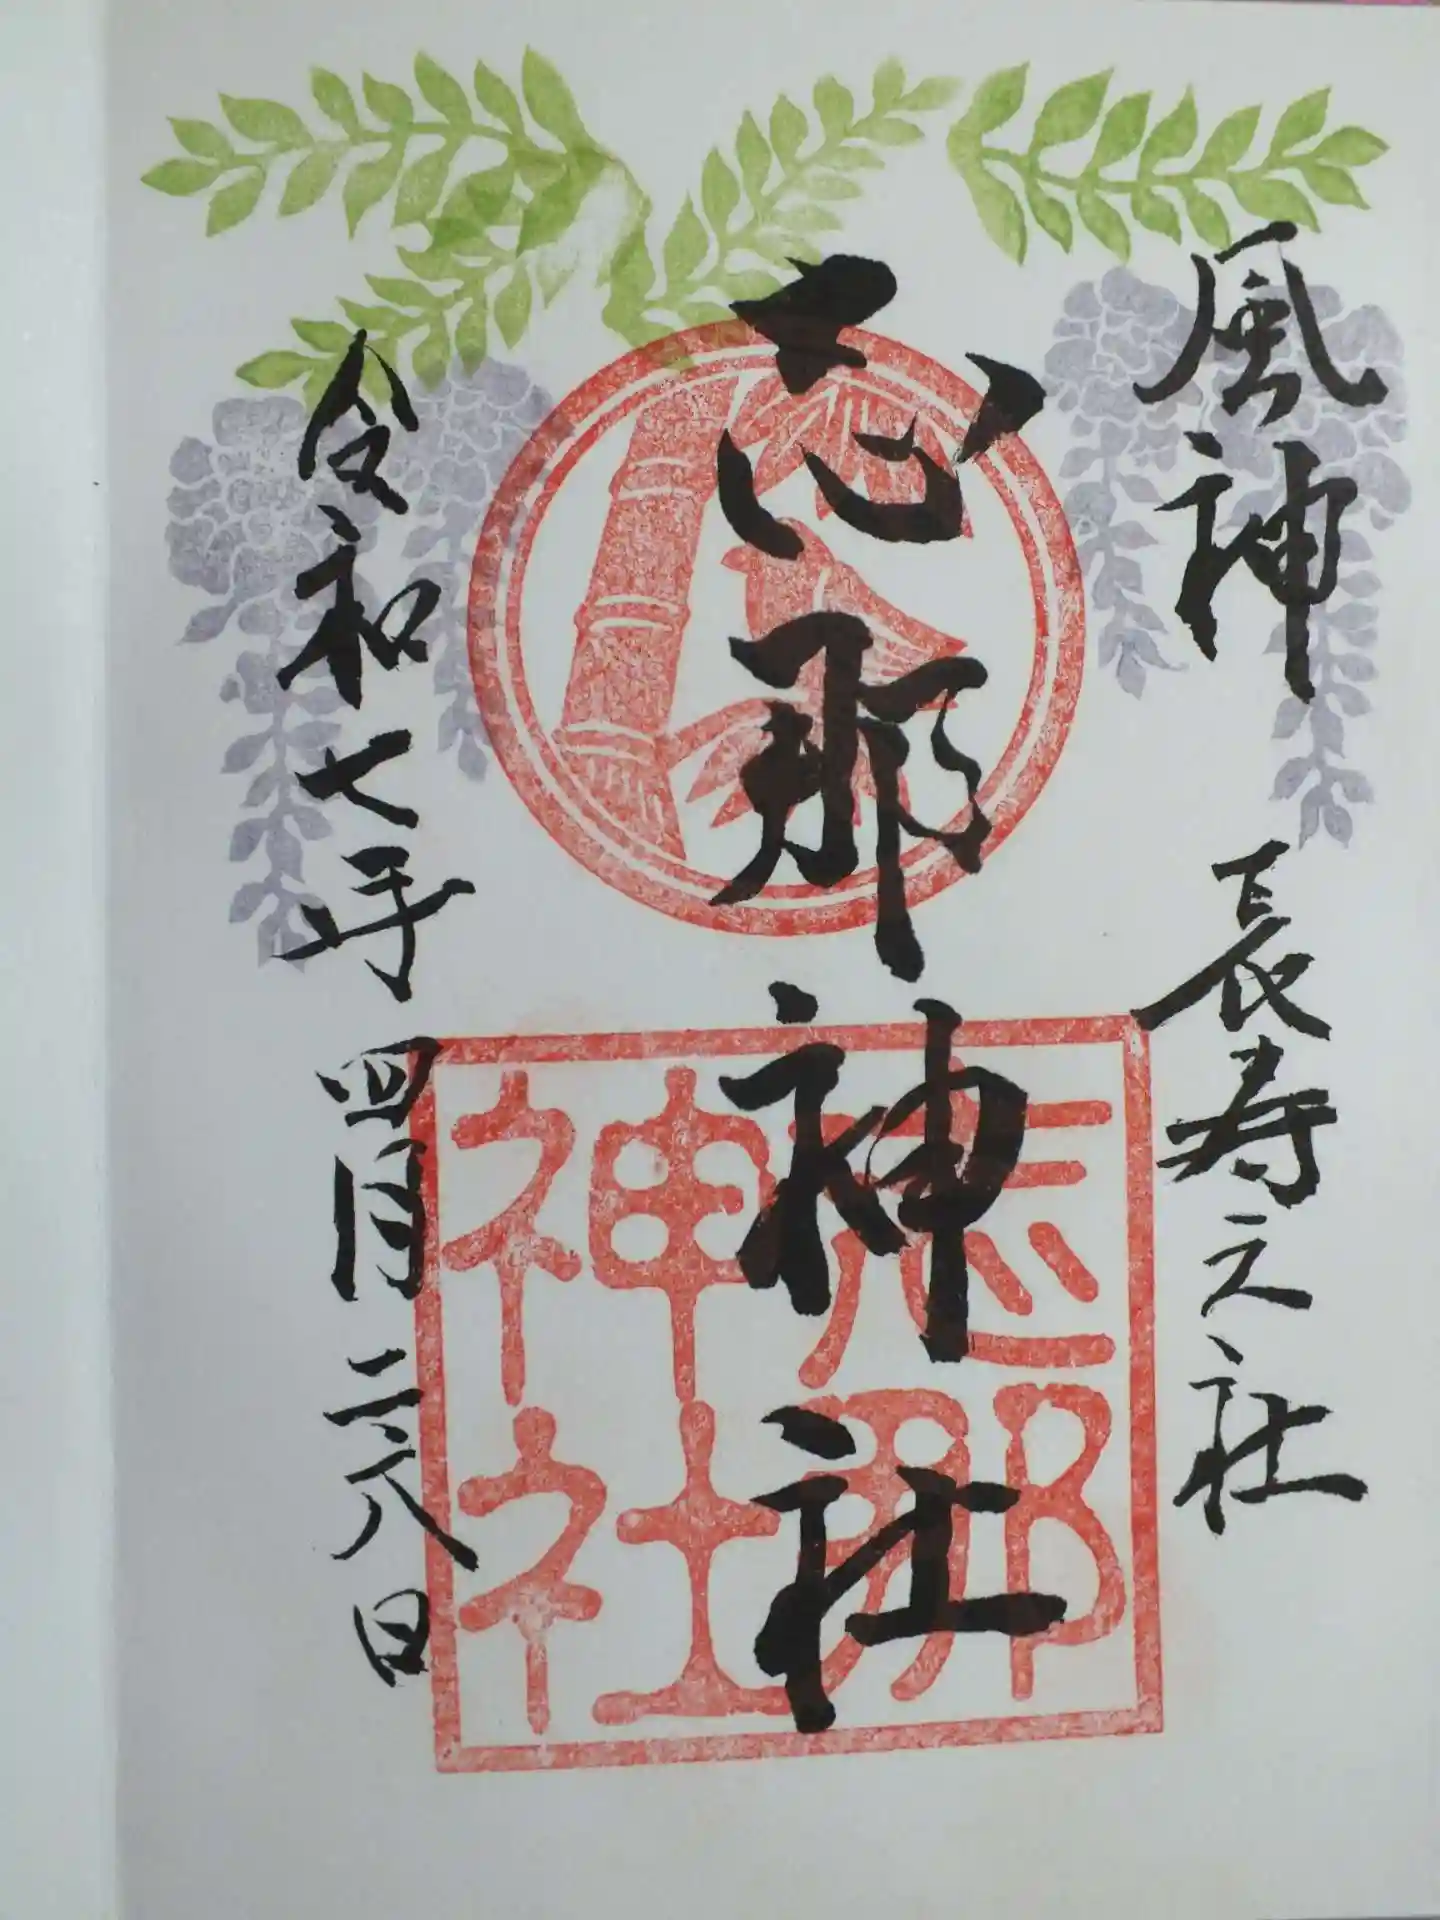 風神 長寿之社
志那神社
令和七年四月二六日
志那
神社